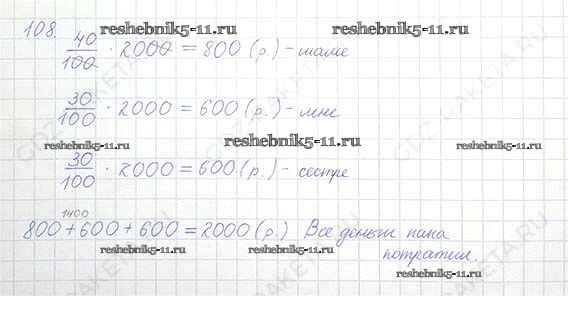 reshebnik5-11.ru reshebnik5-11.ru
108. 40/100 · 2000 = 800 (р.) - маме
30/100 · 2000 = 600 (р.) - мне
reshebnik5-11.ru reshebnik5-11.ru reshebnik5-11.ru
30/100 · 2000 = 600 (р.) - сестре
1400
800 + 600 + 600 = 2000 (р.) Все деньги папа
reshebnik5-11.ru reshebnik5-11.ru потратил.
reshebnik5-11.ru